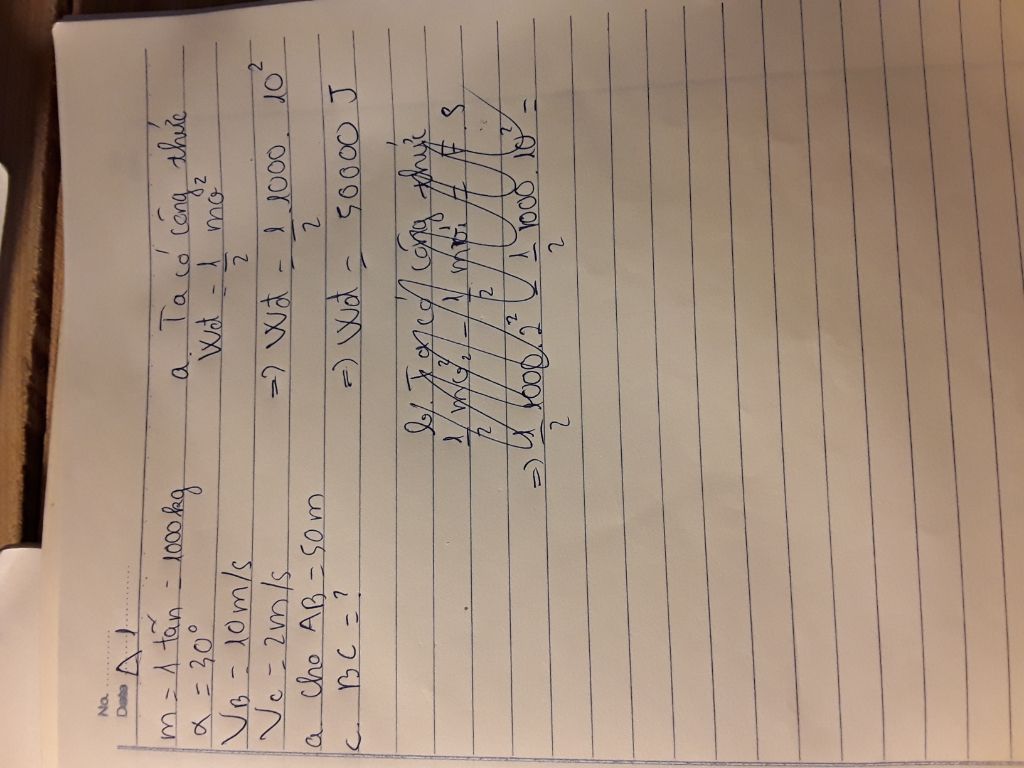 No.
Date A1
m = 1 tấn = 1000 kg
α = 30°
VB = 10m/s
VC = 2m/s
a Cho AB = 50m
c. BC = ?
a. Ta có công thức
Wđ = 1/2 mv²
=> Wđ = 1/2 1000. 10²
=> Wđ = 50000 J
b. Ta có công thức
=> 1/2 1000. 2² - 1/2 1000. 10² =